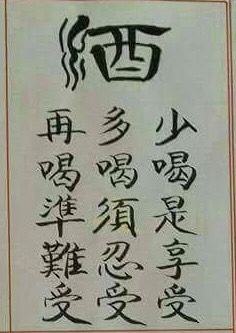 酒
少喝是享受
多喝須忍受
再喝準難受